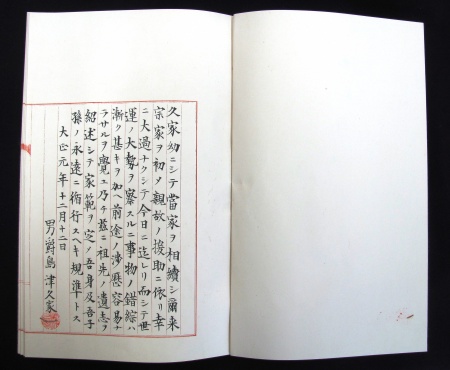 久家幼ニシテ當家ヲ相續シ爾来
宗家ヲ初メ親故ノ援助ニ依リ幸
ニ大過ナクシテ今日ニ迄レリ而シテ世
運ノ大勢ヲ察スルニ事物ノ錯綜ハ
漸ク甚キヲ加ヘ前途ノ渉歴容易ナ
ラサルヲ覺ユ乃チ茲ニ祖先ノ遺志ヲ
紹述シテ家範ヲ定ノ吾身及吾子
孫ノ永遠ニ循行スヘキ規準トス
大正元年十二月十二日
男爵島津久家